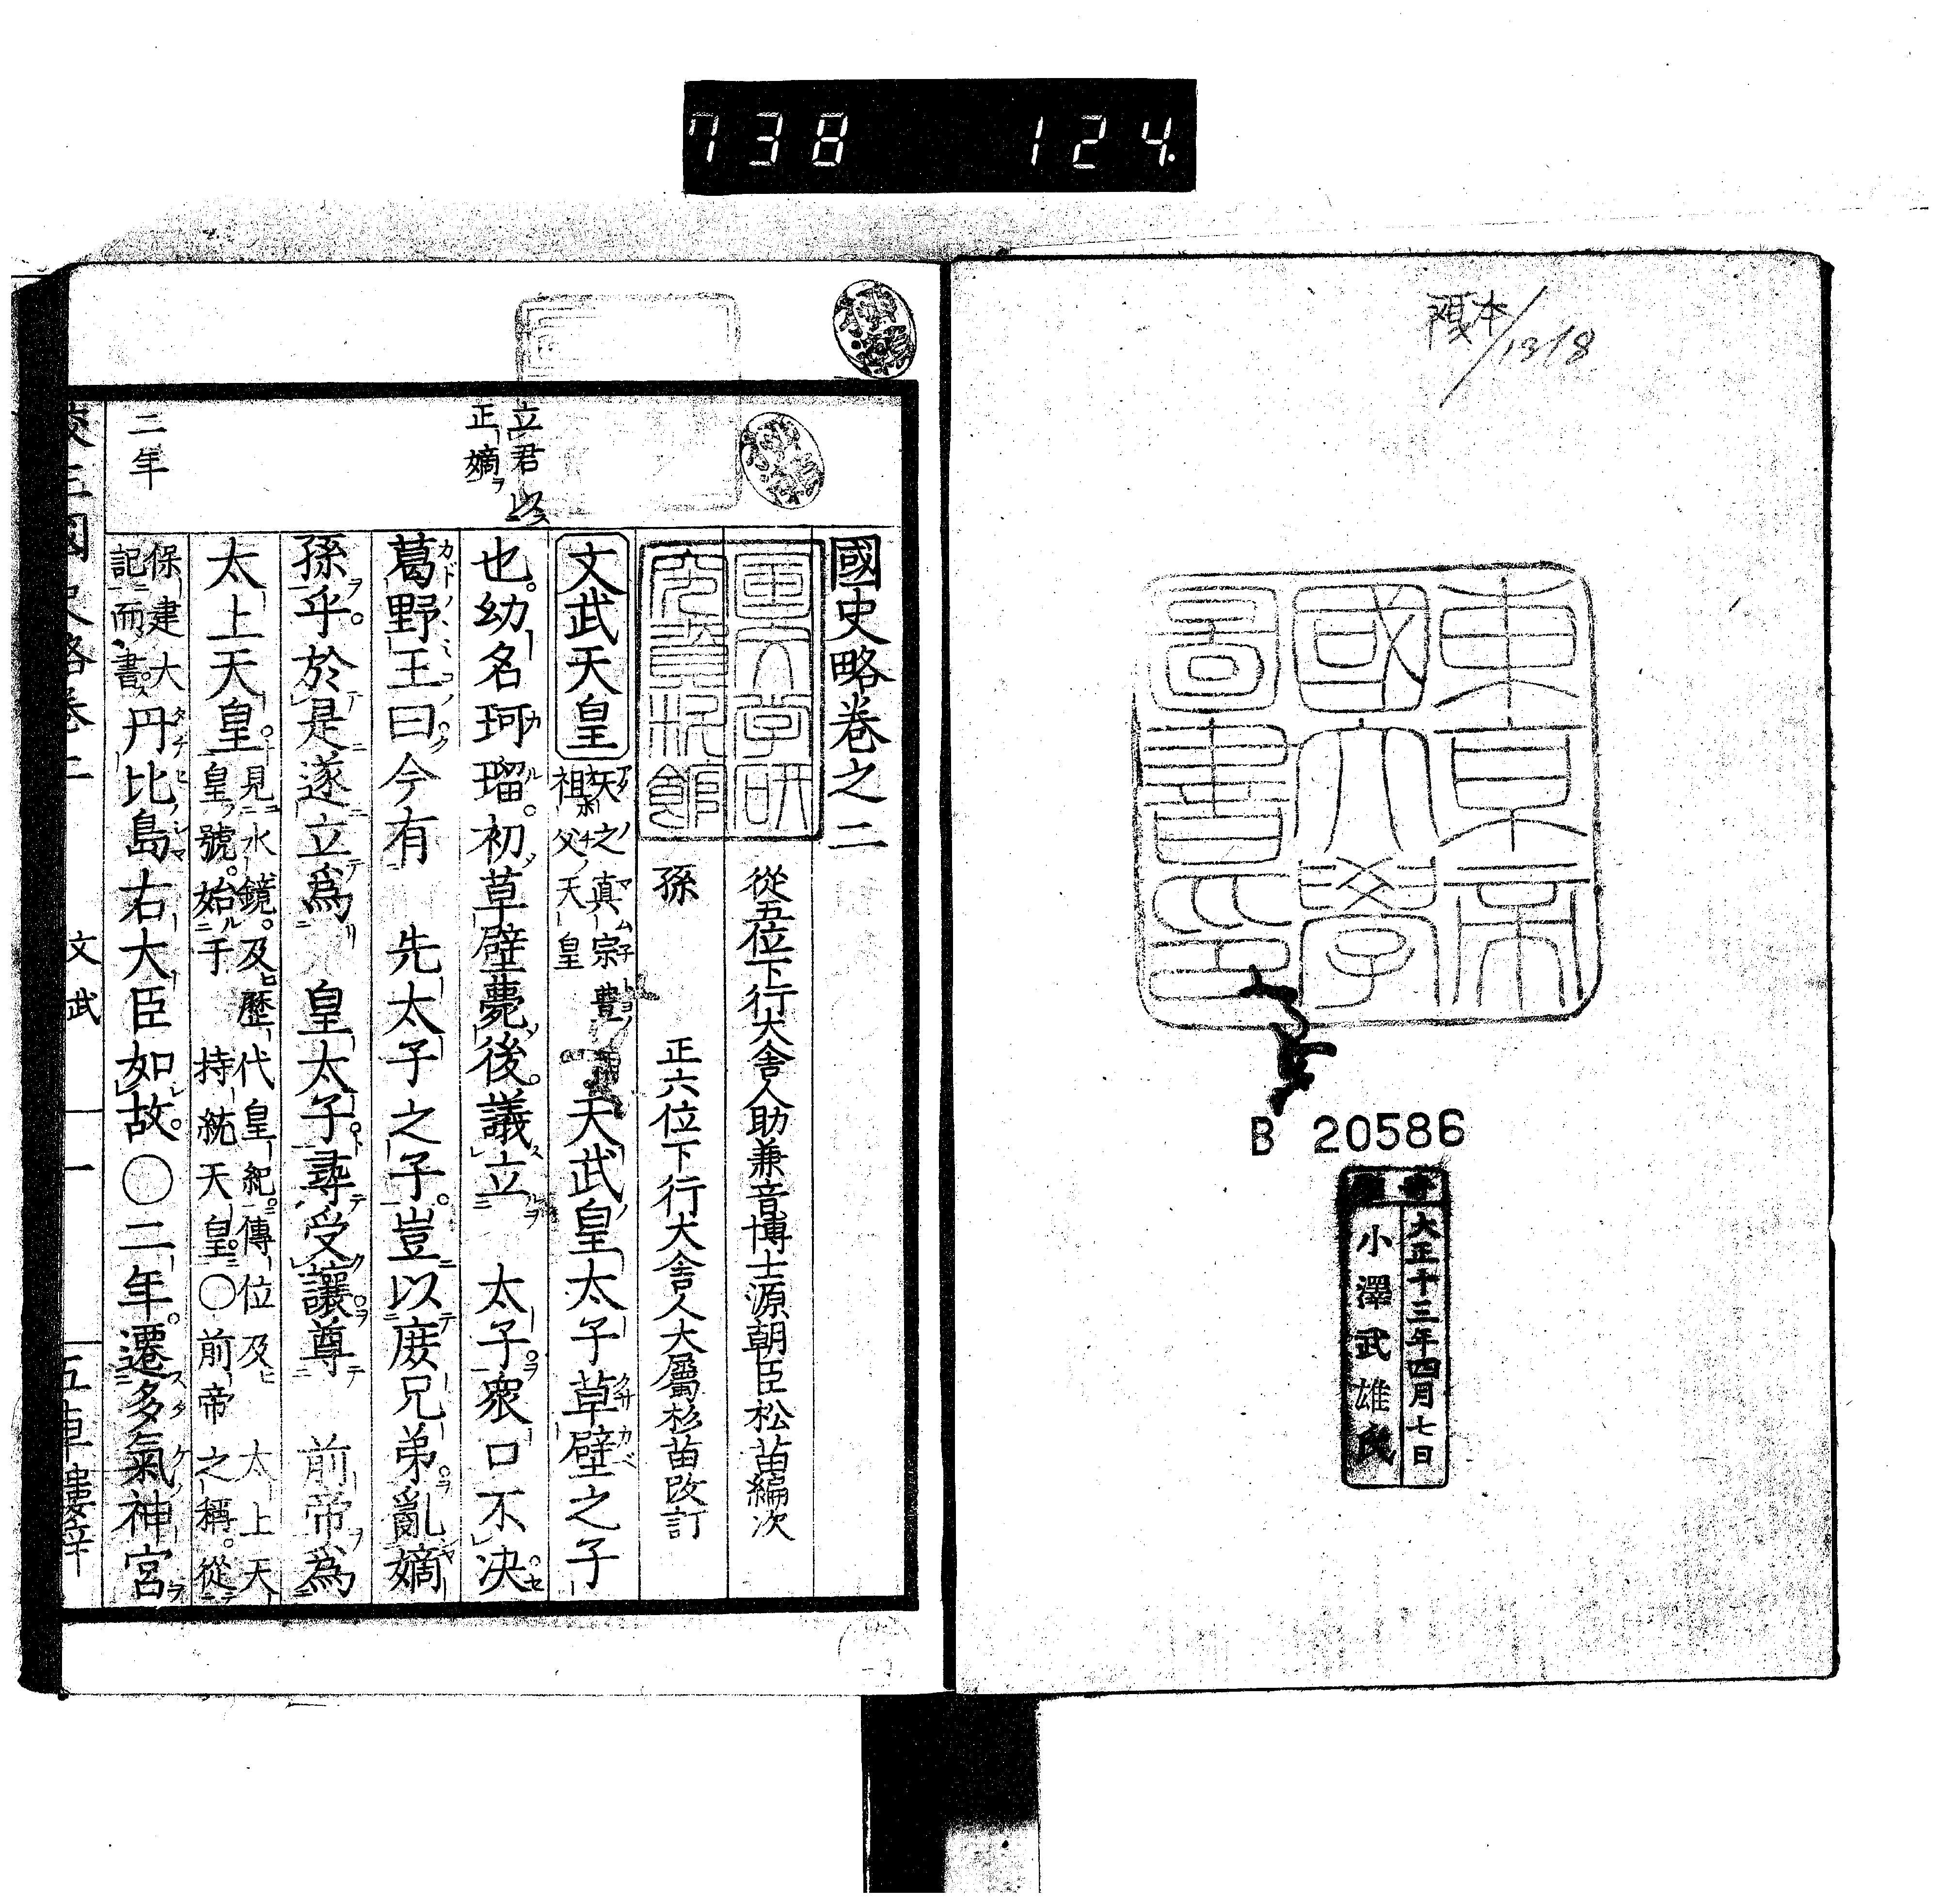 738 124
複本/1318
東京帝
國大學
圖書印
B 20586
大正十三年四月七日
小澤武雄氏
國史略卷之二
從五位下行大舍人助兼音博士源朝臣松苗編次
孫 正六位下行大舍人大屬杉苗改訂
立君以
正嫡ヲ
文武天皇 天之真宗豊
祖父天皇
天武皇太子草壁之子
也。幼名珂瑠。初草壁薨後。議立 太子。衆口不决。
葛野王曰。今有 先太子之子。豈以庶兄弟。亂嫡
孫乎。於是遂立爲 皇太子。尋受讓。尊 前帝爲
太上天皇。
見水鏡。及歷代皇紀。傳位及 太上天
皇號。始于 持統天皇。〇前帝之稱。從
二年
保建大
記而書。
丹比島右大臣如故。〇二年。遷多氣神宮
文武
一